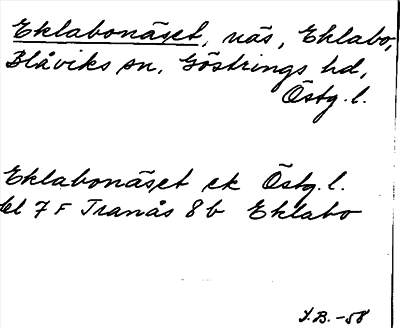 Eklabonäset, näs, Eklabo,
Blåviks sn, Göstrings hd,
Östg. l.
Eklabonäset ek Östg. l.
bl 7 F Tranås 8 b Eklabo
S.B. -58